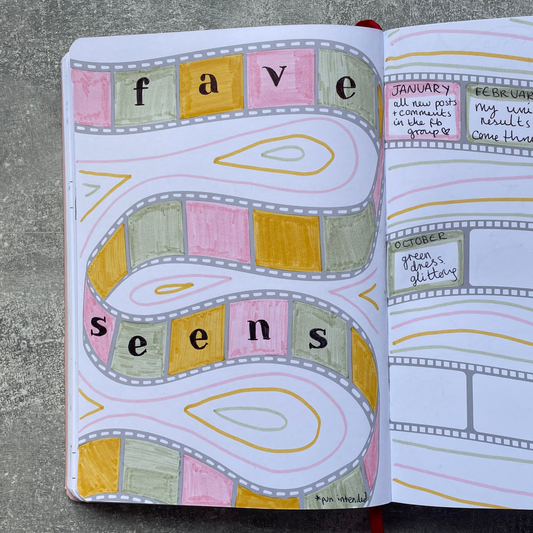 fave
seens
*pun intended
JANUARY
all new posts
+ comments
in the fb
group
FEBRUAR
my uni
results
come thro
OCTOBER
green
dress.
glittery